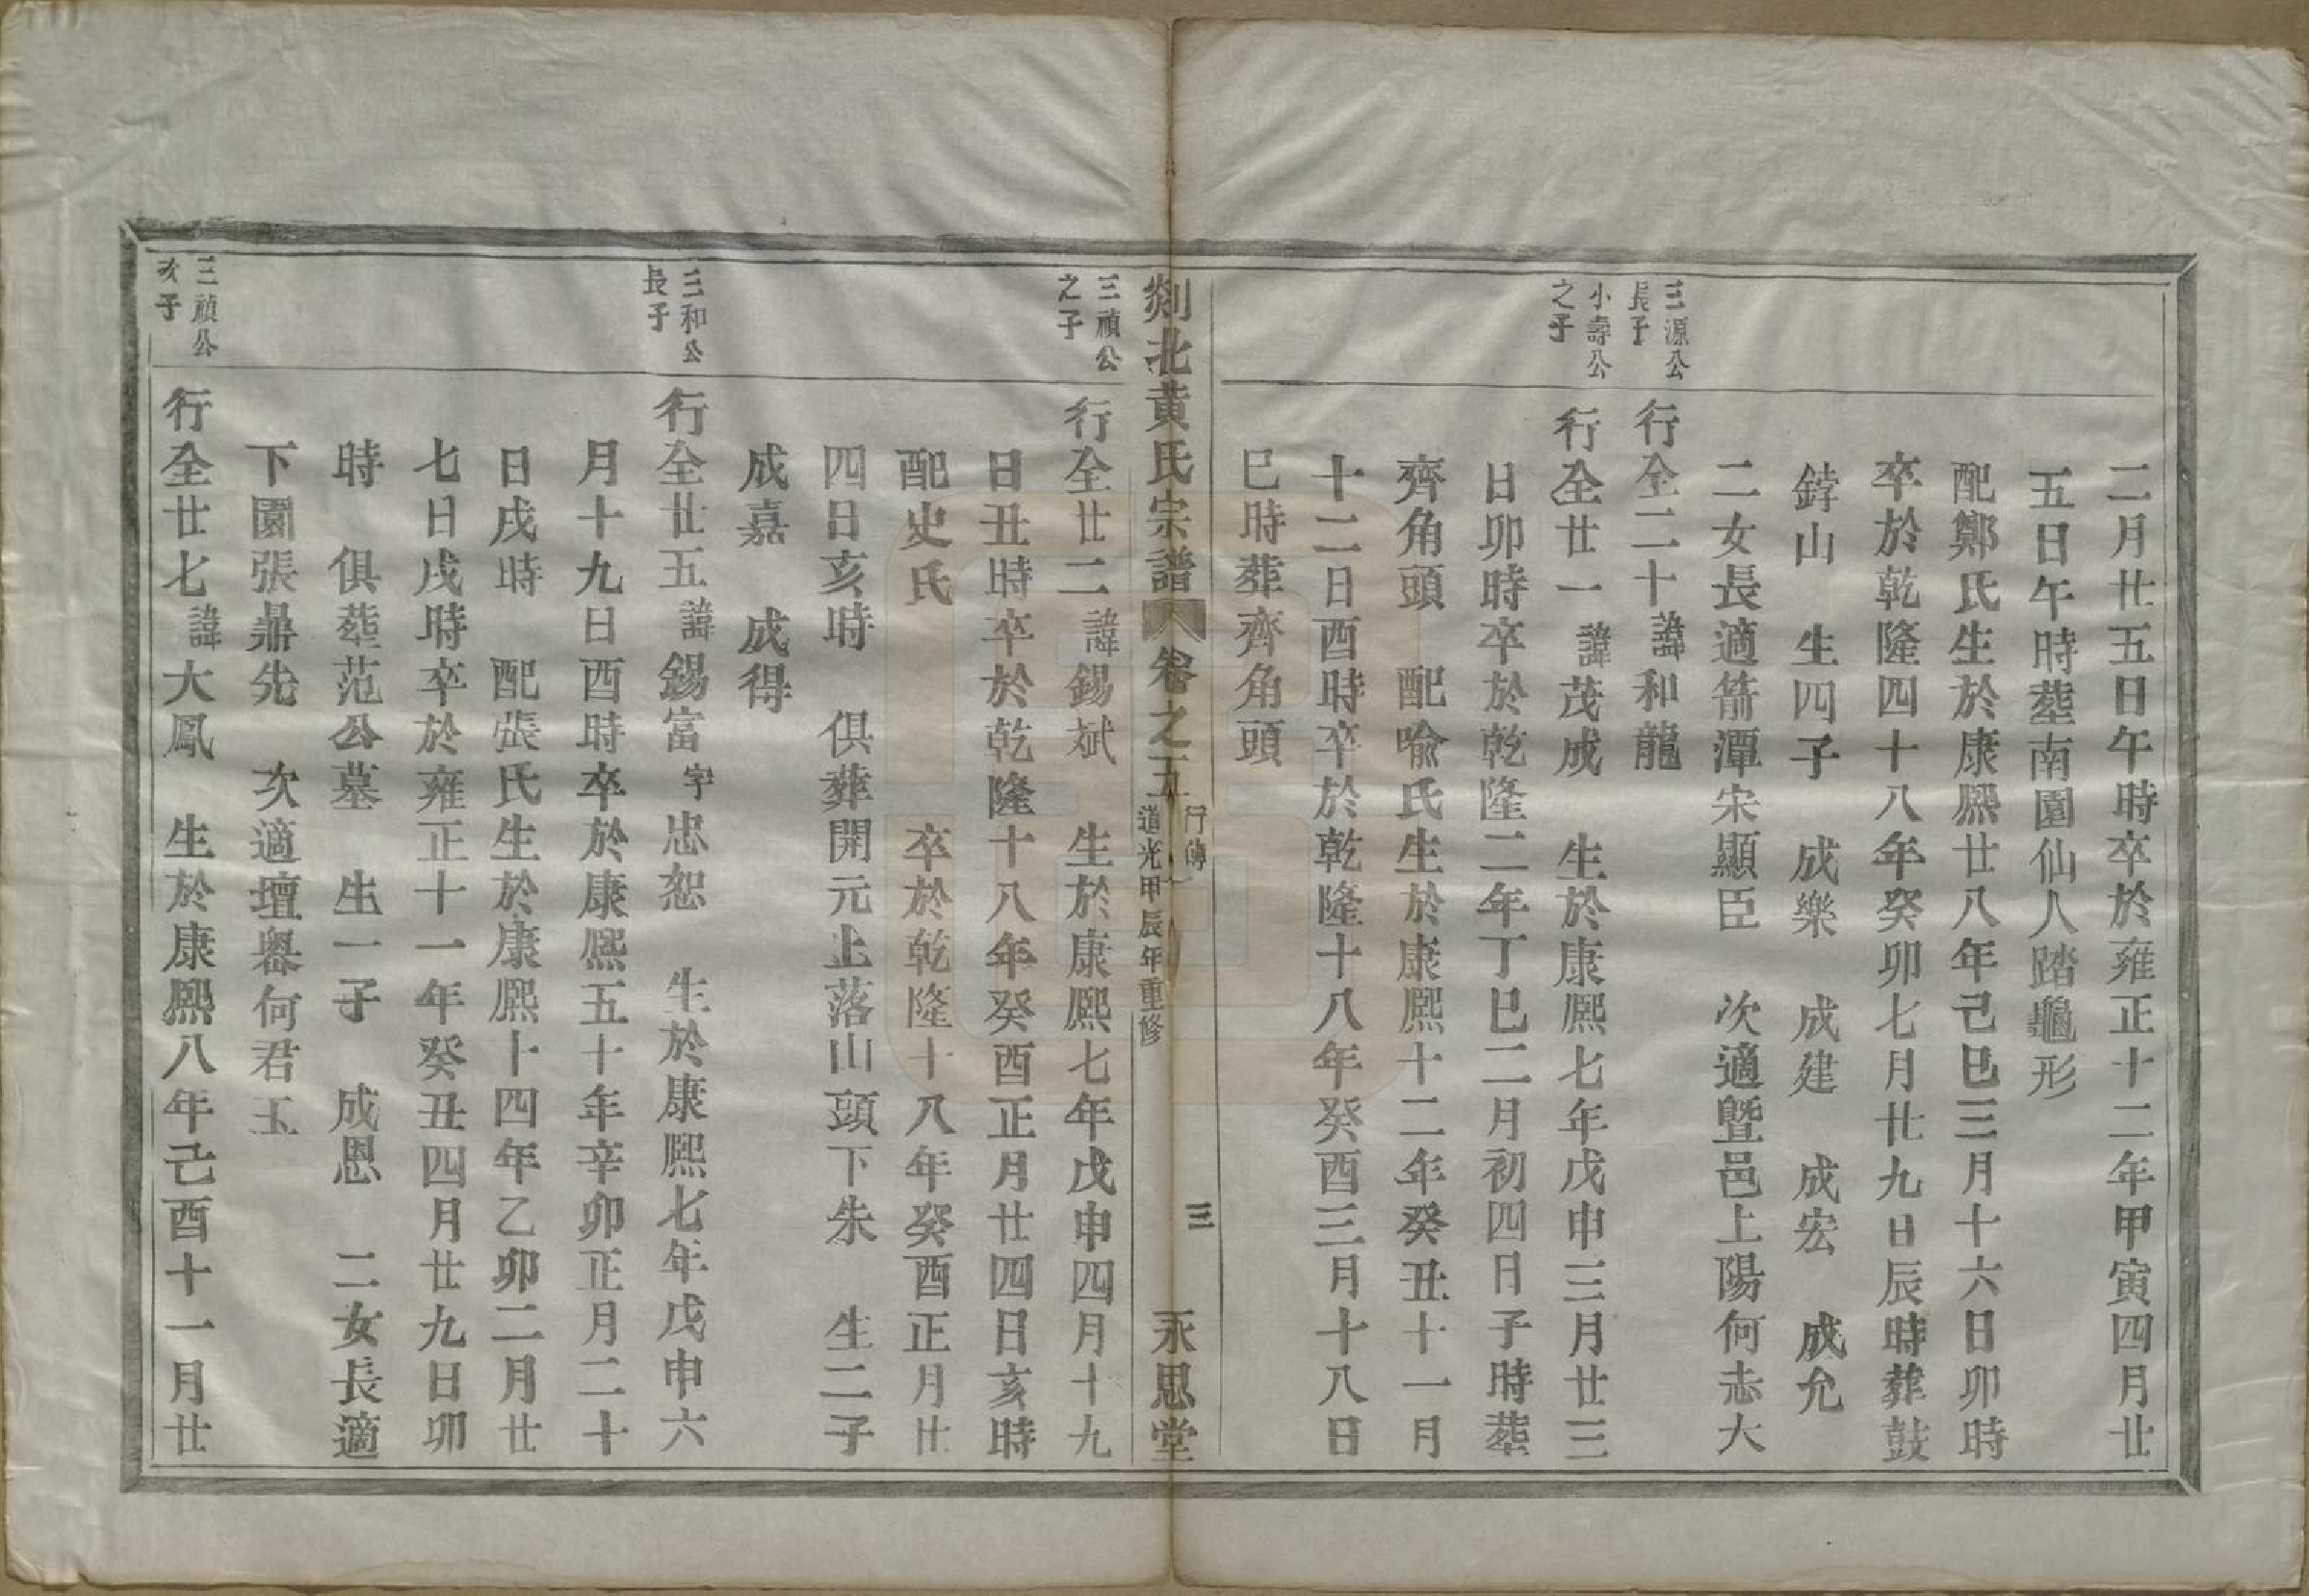 二月廿五日午時卒於雍正十二年甲寅四月廿
五日午時葬南園仙人踏龜形
配鄭氏生於康熙廿八年己巳三月十六日卯時
卒於乾隆四十八年癸卯七月廿九日辰時葬鼓
山 生四子 成樂 成建 成宏 成允
二女長適箭潭宋顯臣 次適暨邑上陽何志大
三源公
長子
行全二十諱和龍
小壽公
之子
行全廿一諱茂成 生於康熙七年戊申三月廿三
日卯時卒於乾隆二年丁巳二月初四日子時葬
齊角頭 配喻氏生於康熙十二年癸丑十一月
十二日酉時卒於乾隆十八年癸酉三月十八日
巳時葬齊角頭
剡北黃氏宗譜 卷之五 行傳 道光甲辰年重修 三 永思堂
三禎公
之子
行全廿二諱錫斌 生於康熙七年戊申四月十九
日丑時卒於乾隆十八年癸酉正月廿四日亥時
配史氏 卒於乾隆十八年癸酉正月廿
四日亥時 俱葬開元上落山頭下朱 生二子
成嘉 成得
三和公
長子
行全廿五諱錫富字忠恕 生於康熙七年戊申六
月十九日酉時卒於康熙五十年辛卯正月二十
日戌時 配張氏生於康熙十四年乙卯二月廿
七日戌時卒於雍正十一年癸丑四月廿九日卯
時 俱葬范公墓 生一子 成恩 二女長適
下園張鼎先 次適壇嶴何君玉
三禎公
次子
行全廿七諱大鳳 生於康熙八年己酉十一月廿